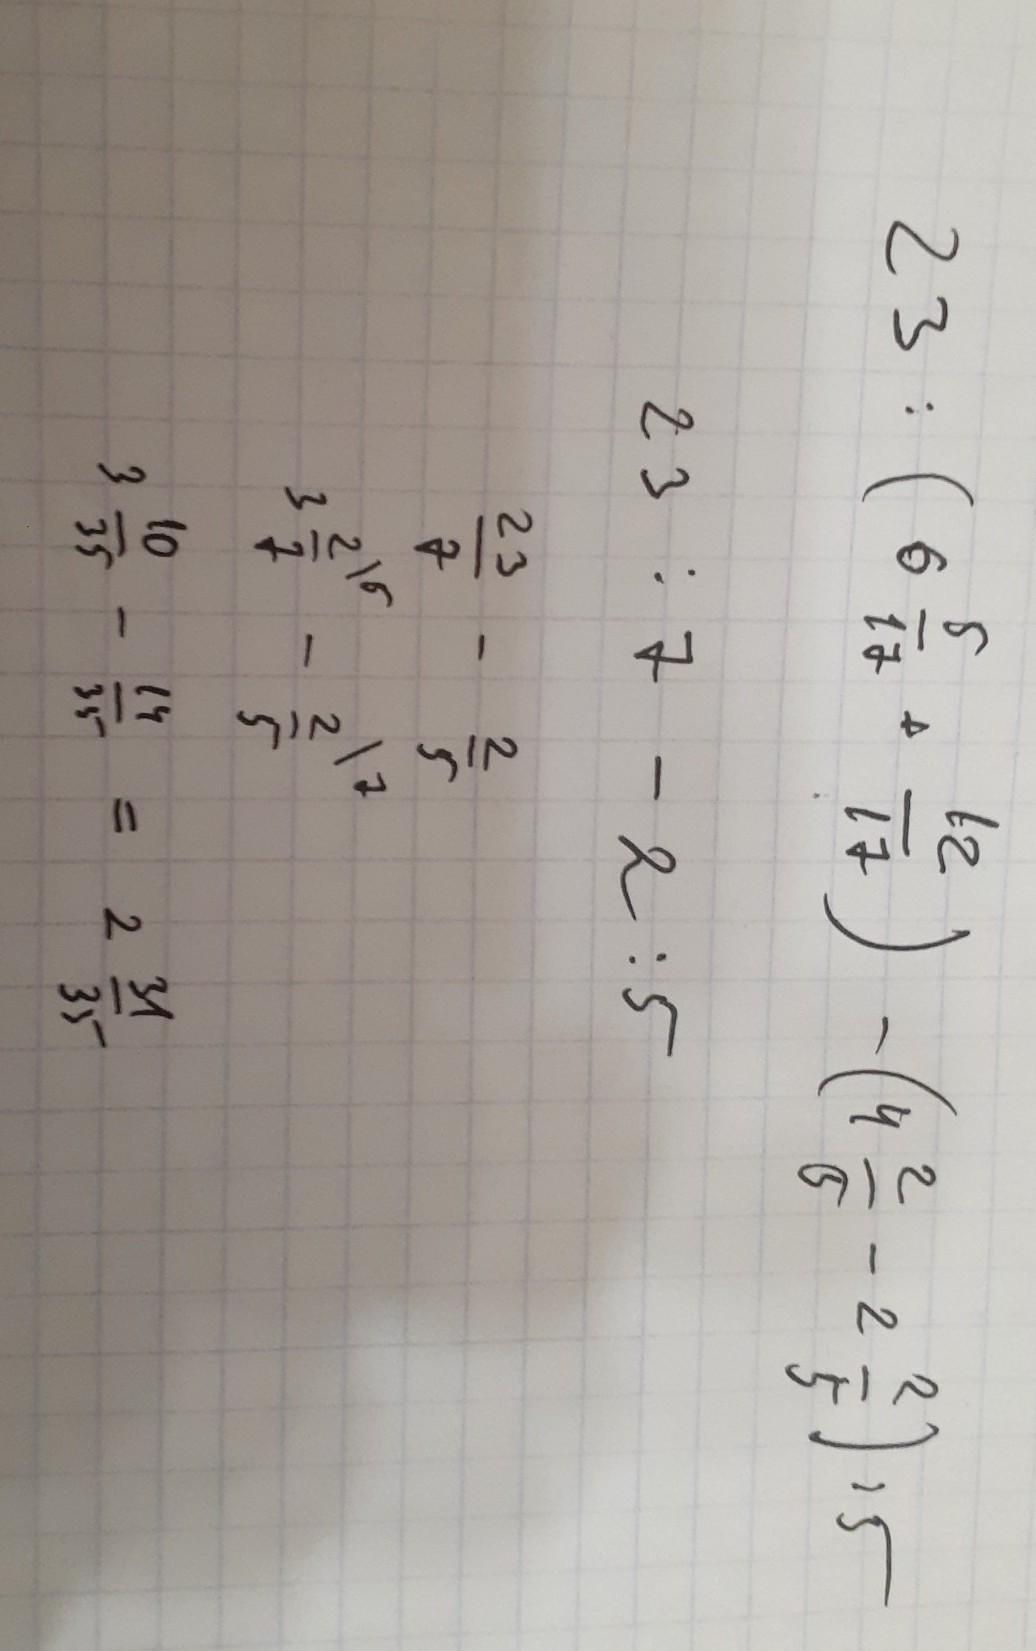 23 : (6 5/17 + 12/17) - (4 2/5 - 2 2/5) : 5
23 : 7 - 2 : 5
23/7 - 2/5
3 2/7 \5 - 2/5 \7
3 10/35 - 14/35 = 2 31/35